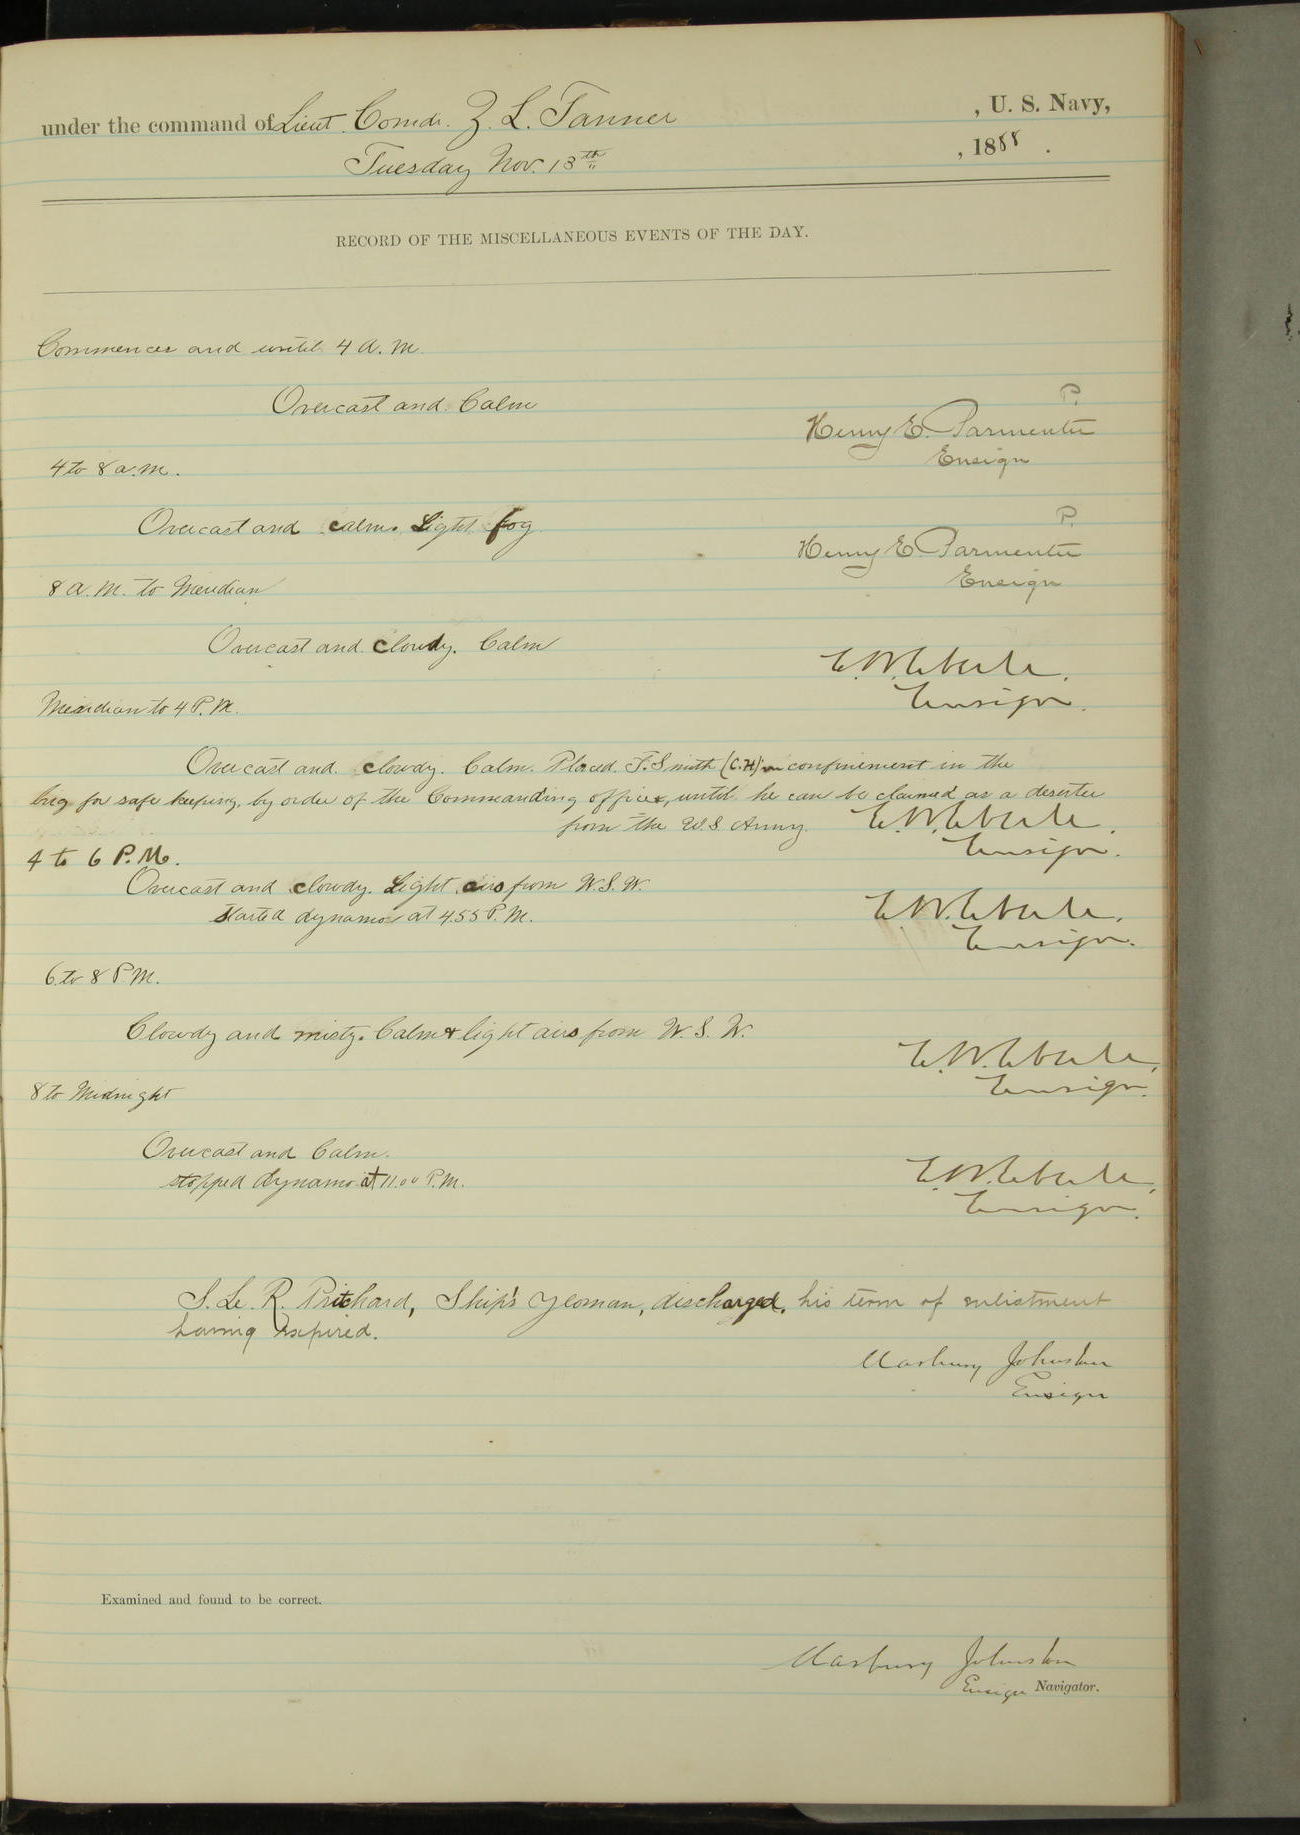 under the command of Lieut. Comdr. Z. L. Tanner , U. S. Navy,
Tuesday Nov. 13th , 1888 .
RECORD OF THE MISCELLANEOUS EVENTS OF THE DAY.
Commences and until 4 A. M.
Overcast and Calm
P.
Henry E. Parmenter
Ensign
4 to 8 a.m.
Overcast and calm. Light fog.
P.
Henry E. Parmenter
Ensign
8 A. M. to Meridian
Overcast and cloudy. Calm
E. W. Eberle.
Ensign.
Meridian to 4 P. M.
Overcast and cloudy. Calm. Placed F. Smith (C.H) in confinement in the
brig for safe keeping, by order of the Commanding officer, until he can be claimed as a deserter
from the U.S. Army. E. W. Eberle.
Ensign.
4 to 6 P. M.
Overcast and cloudy. Light airs from W. S. W.
Started dynamo at 4.55 P. M. E. W. Eberle.
Ensign.
6 to 8 P M.
Cloudy and misty. Calm & light airs from W. S. W.
E. W. Eberle.
Ensign.
8 to Midnight
Overcast and Calm.
stopped dynamo at 11.00 P. M. E. W. Eberle.
Ensign.
S. Le. R. Pritchard, Ship's Yeoman, discharged, his term of enlistment
having expired.
Marbury Johnston
Ensign
Examined and found to be correct.
Marbury Johnston
Ensign Navigator.